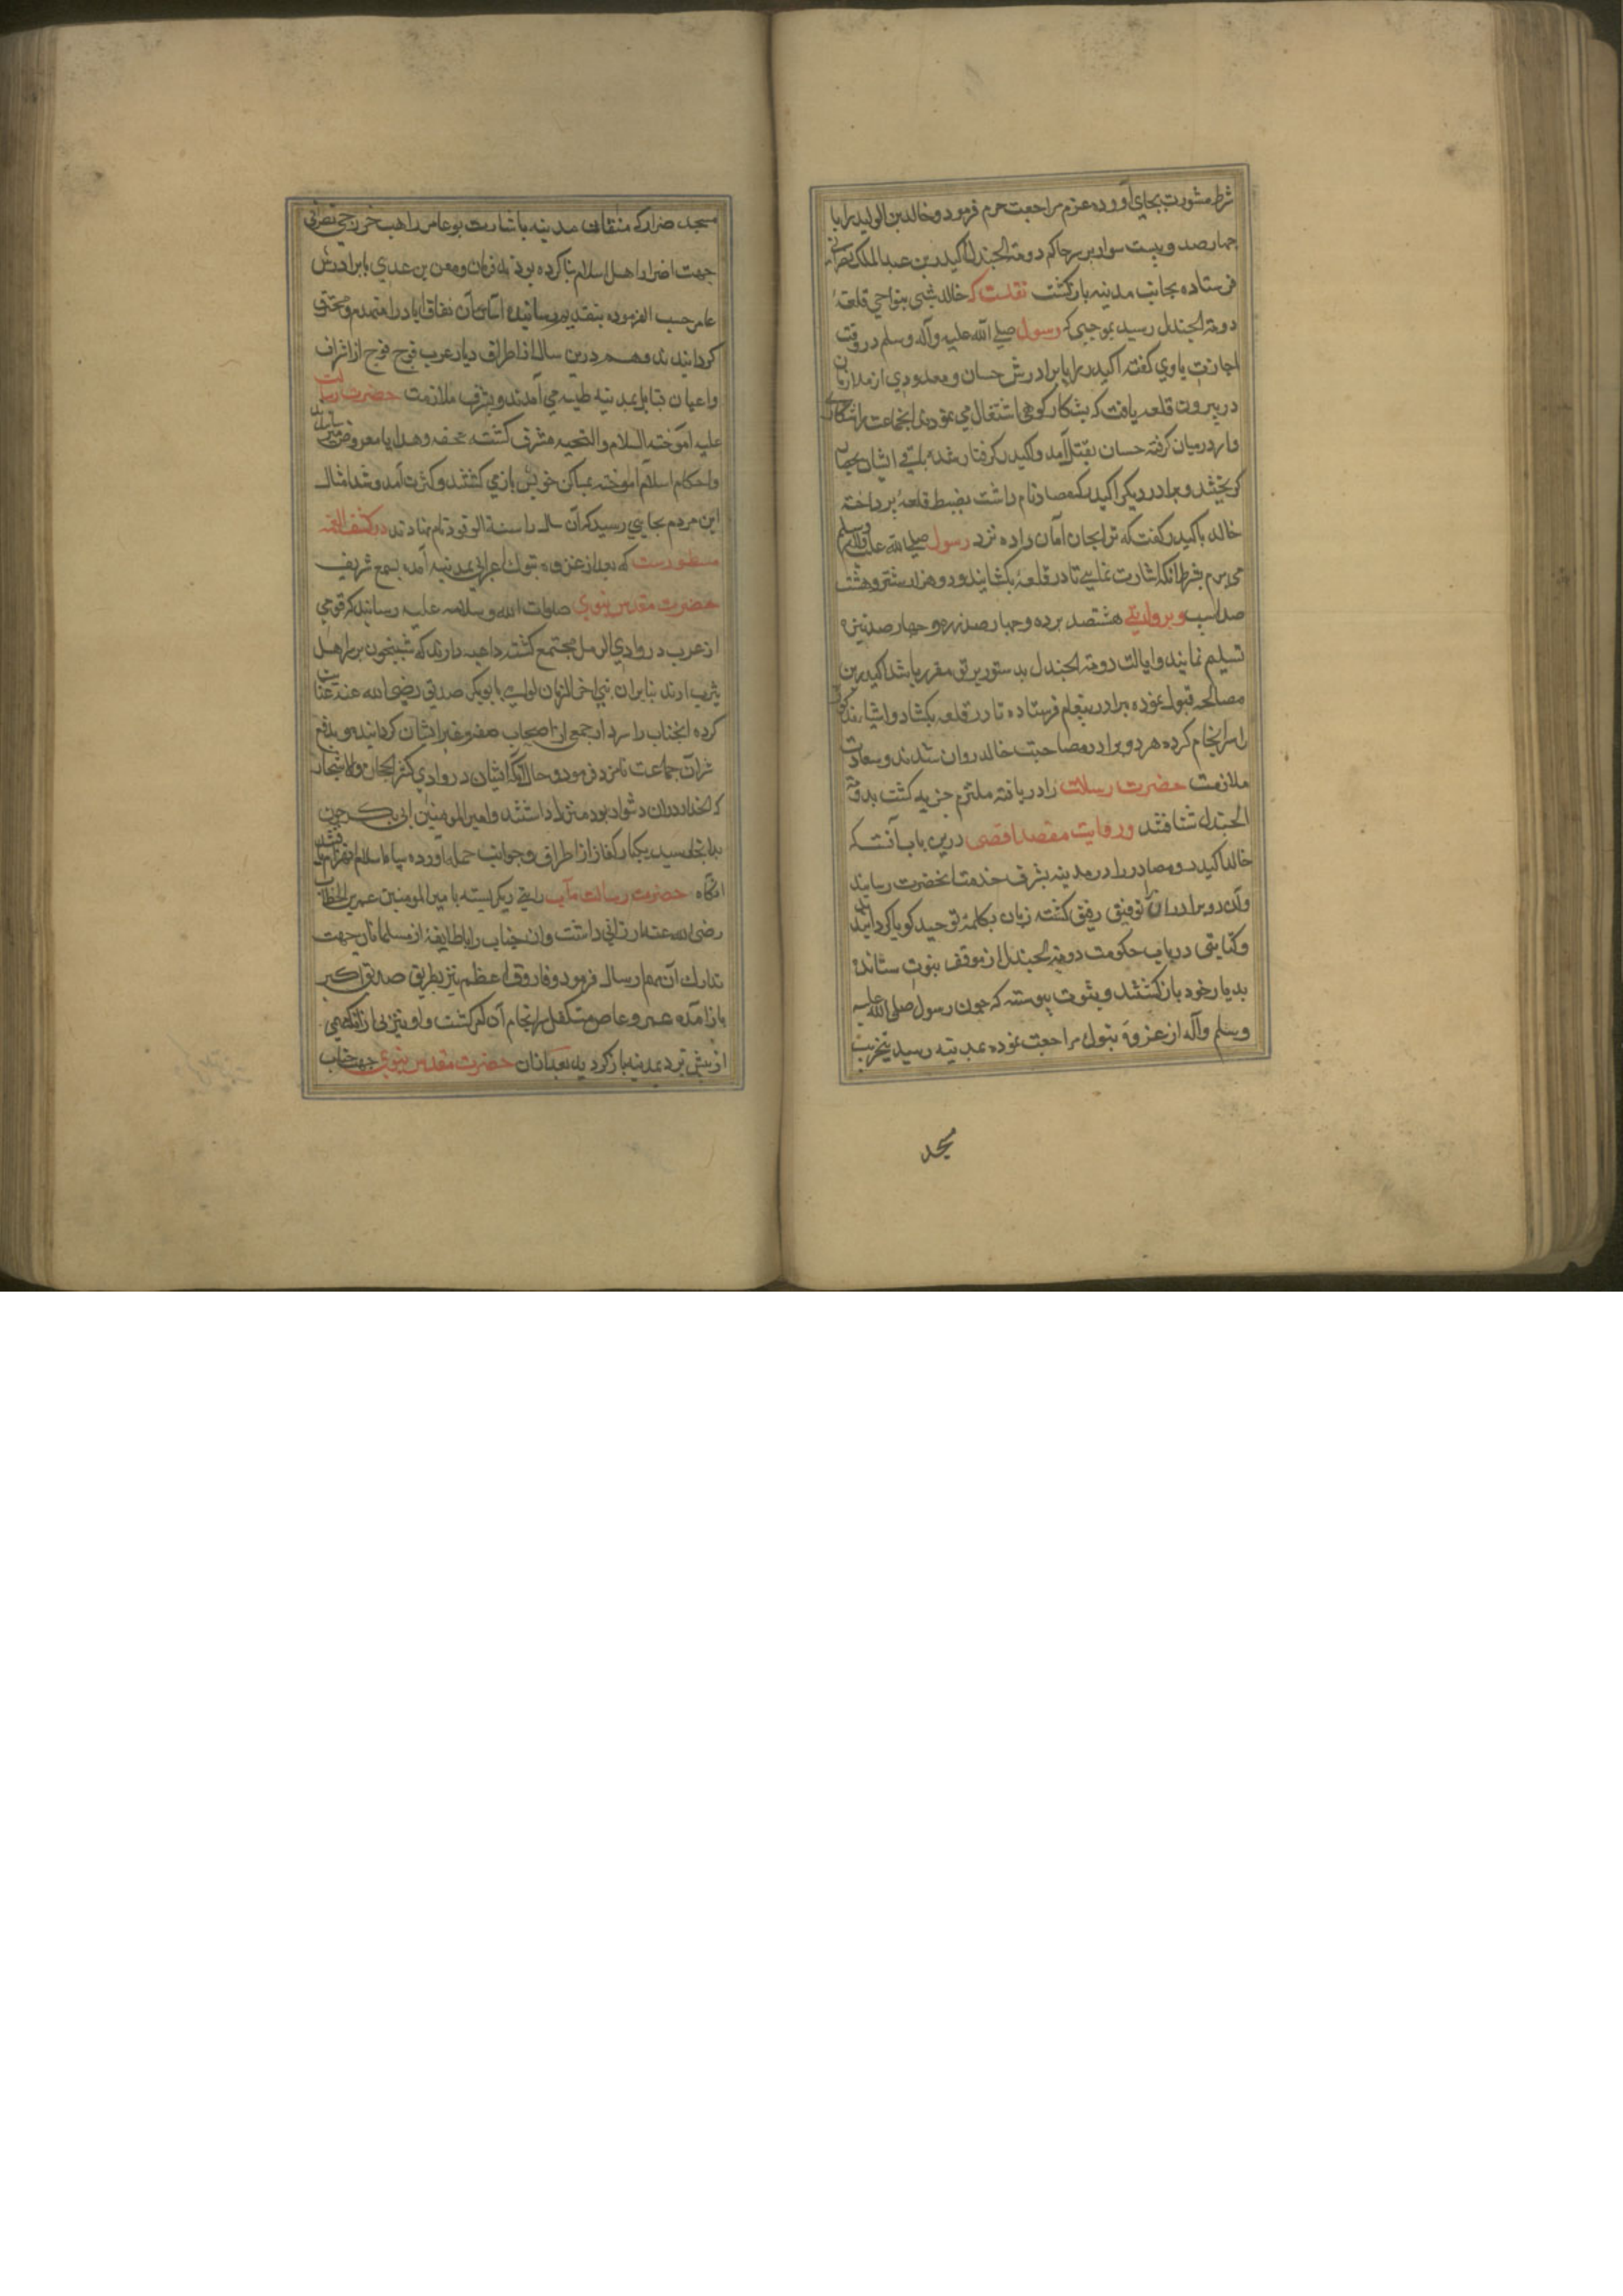 شرط مشورت بجای آورده عزم مراجعت جزم فرمود و خالد بن الولید را با
چهار صد و بیست سوار بر سر حاکم دومة الجندل اکیدر بن عبد الملک نصرانی
فرستاده بجانب مدینه بازگشت نقلست که خالد شبی بنواحی قلعهٔ
دومة الجندل رسید بموجبی که رسول صلی الله علیه وآله وسلم در وقت
اجازت باوی گفته اکیدر را با برادرش حسان و معدودی از ملازمان
در بیرون قلعه یافت که بشکار کوهی اشتغال می نمودند انجماعت را شکار
وار درمیان گرفته حسان بقتل آمد و اکیدر گرفتار شده باقی ایشان بجهان
گریختند و برادر دیگر اکیدر که مصاد نام داشت بضبط قلعه پرداخته
خالد با کیدر گفت که ترا بجان امان داده نزد رسول صلی الله علیه وآله وسلم
می برم بشرط آنکه اشارت نمایی تا در قلعه بکشایند و دو هزار شتر و هشت
صد اسب و بروایتی هشتصد برده و چهار صد زره و چهار صد نیزه
تسلیم نمایند و ایالت دومة الجندل بدستور بر تو مقرر باشد اکیدر این
مصالحه قبول نموده برادر پیغام فرستاده تا در قلعه بکشاد و اشیاء مذکور
را سرانجام کرده هر دو برادر مصاحبت خالد روان شدند و سعادت
ملازمت حضرت رسالت را دریافته ملتزم جزیه گشت بدومة
الجندل شتافتند و روایت مقصد اقصی درین باب آنست که
خالد اکیدر و مصاد را در مدینه بشرف خدمت آنحضرت رسانید
وآن دو برادر را توفیق رفیق گشته زبان بکلمهٔ توحید گویا گردانیدند
و کتابتی در باب حکومت دومة الجندل از موقف نبوت ستانده
بدیار خود بازگشتند و بثبوت پیوسته که چون رسول صلی الله علیه
وسلم وآله از غزوهٔ تبوک مراجعت نموده بمدینه رسید بتخریب
مسجد
مسجد ضرار که منافقان مدینه باشارت بو عامر راهب خزرجی نصرانی
جهت اضرار اهل اسلام بنا کرده بودند فرمان و معن بن عدی با برادرش
عامر حسب الفرموده بتقدیم رسانیده اساس آن نفاق اباد را منهدم و محترق
گردانیدند و هم درین سال از اطراف دیار عرب فوج فوج از اشراف
واعیان قبایل بمدینه طیبه می آمدند و بشرف ملازمت حضرت رسالت
علیه السلام والتحیه مشرف گشته تحفه و هدایا معروض
واحکام اسلام آموخته بمساکن خویش باز می گشتند و کثرت آمد و شد امثال
این مردم بجایی رسید که آن سال را سنة الوفود نام نهادند در کشف الغمه
مسطورست که بعد از غزوه تبوک اعرابی بمدینه آمده بسمع شریف
حضرت مقدس نبوی صلوات الله وسلامه علیه رسانید که قومی
از عرب در وادی الرمل مجتمع گشته داعیه دارند که شبیخون بر اهل
یثرب ارند بنابران نبی اخر الزمان لوایی بابوبکر صدیق رضی الله عنه عنایت
کرده انجناب را سردار جمعی از اصحاب صفه و غیر ایشان گردانید و بدفع
شر آن جماعت نامزد فرمود و حال آنکه ایشان در وادی کثیر الحجارة والاشجار
که انحدار دران دشوار بود منزل داشتند و امیر المومنین ابی بکر چون
بدانجا رسید بیکبار کفار از اطراف و جوانب حمله آورده سپاه اسلام انهزام یافتند
انگاه حضرت رسالت مآب رایتی دیگر بسته بامیر المومنین عمر بن الخطاب
رضی الله عنه ارزانی داشت وان جناب را با طایفهٔ از مسلمانان جهت
تدارک آن مهم ارسال فرمود و فاروق اعظم نیز بطریق صدیق اکبر
باز آمده عمرو عاص متکفل سرانجام آن امر گشت و او نیز بی از آنکه مهمی
از پیش برد بمدینه باز گردید بعد ازان حضرت مقدس نبوی جهت جناب